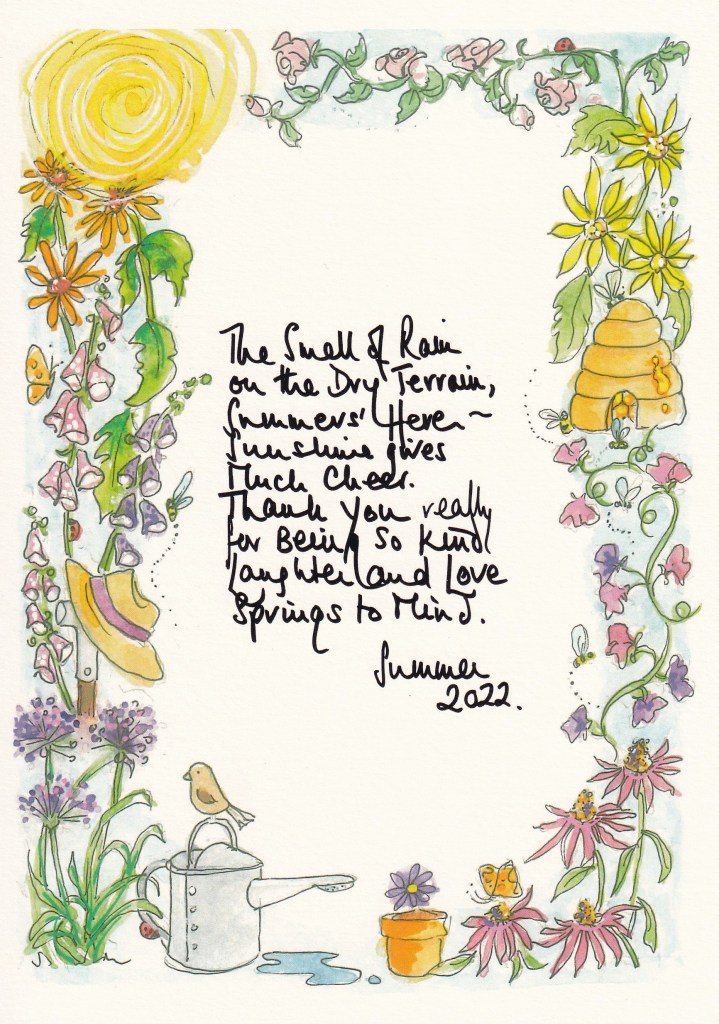 The Smell of Rain
on the Dry Terrain,
Summers' Here ~
Sunshine gives
Much Cheer.
Thank you really
for Being so Kind
laughter and Love
Springs to Mind.
Summer
2022.